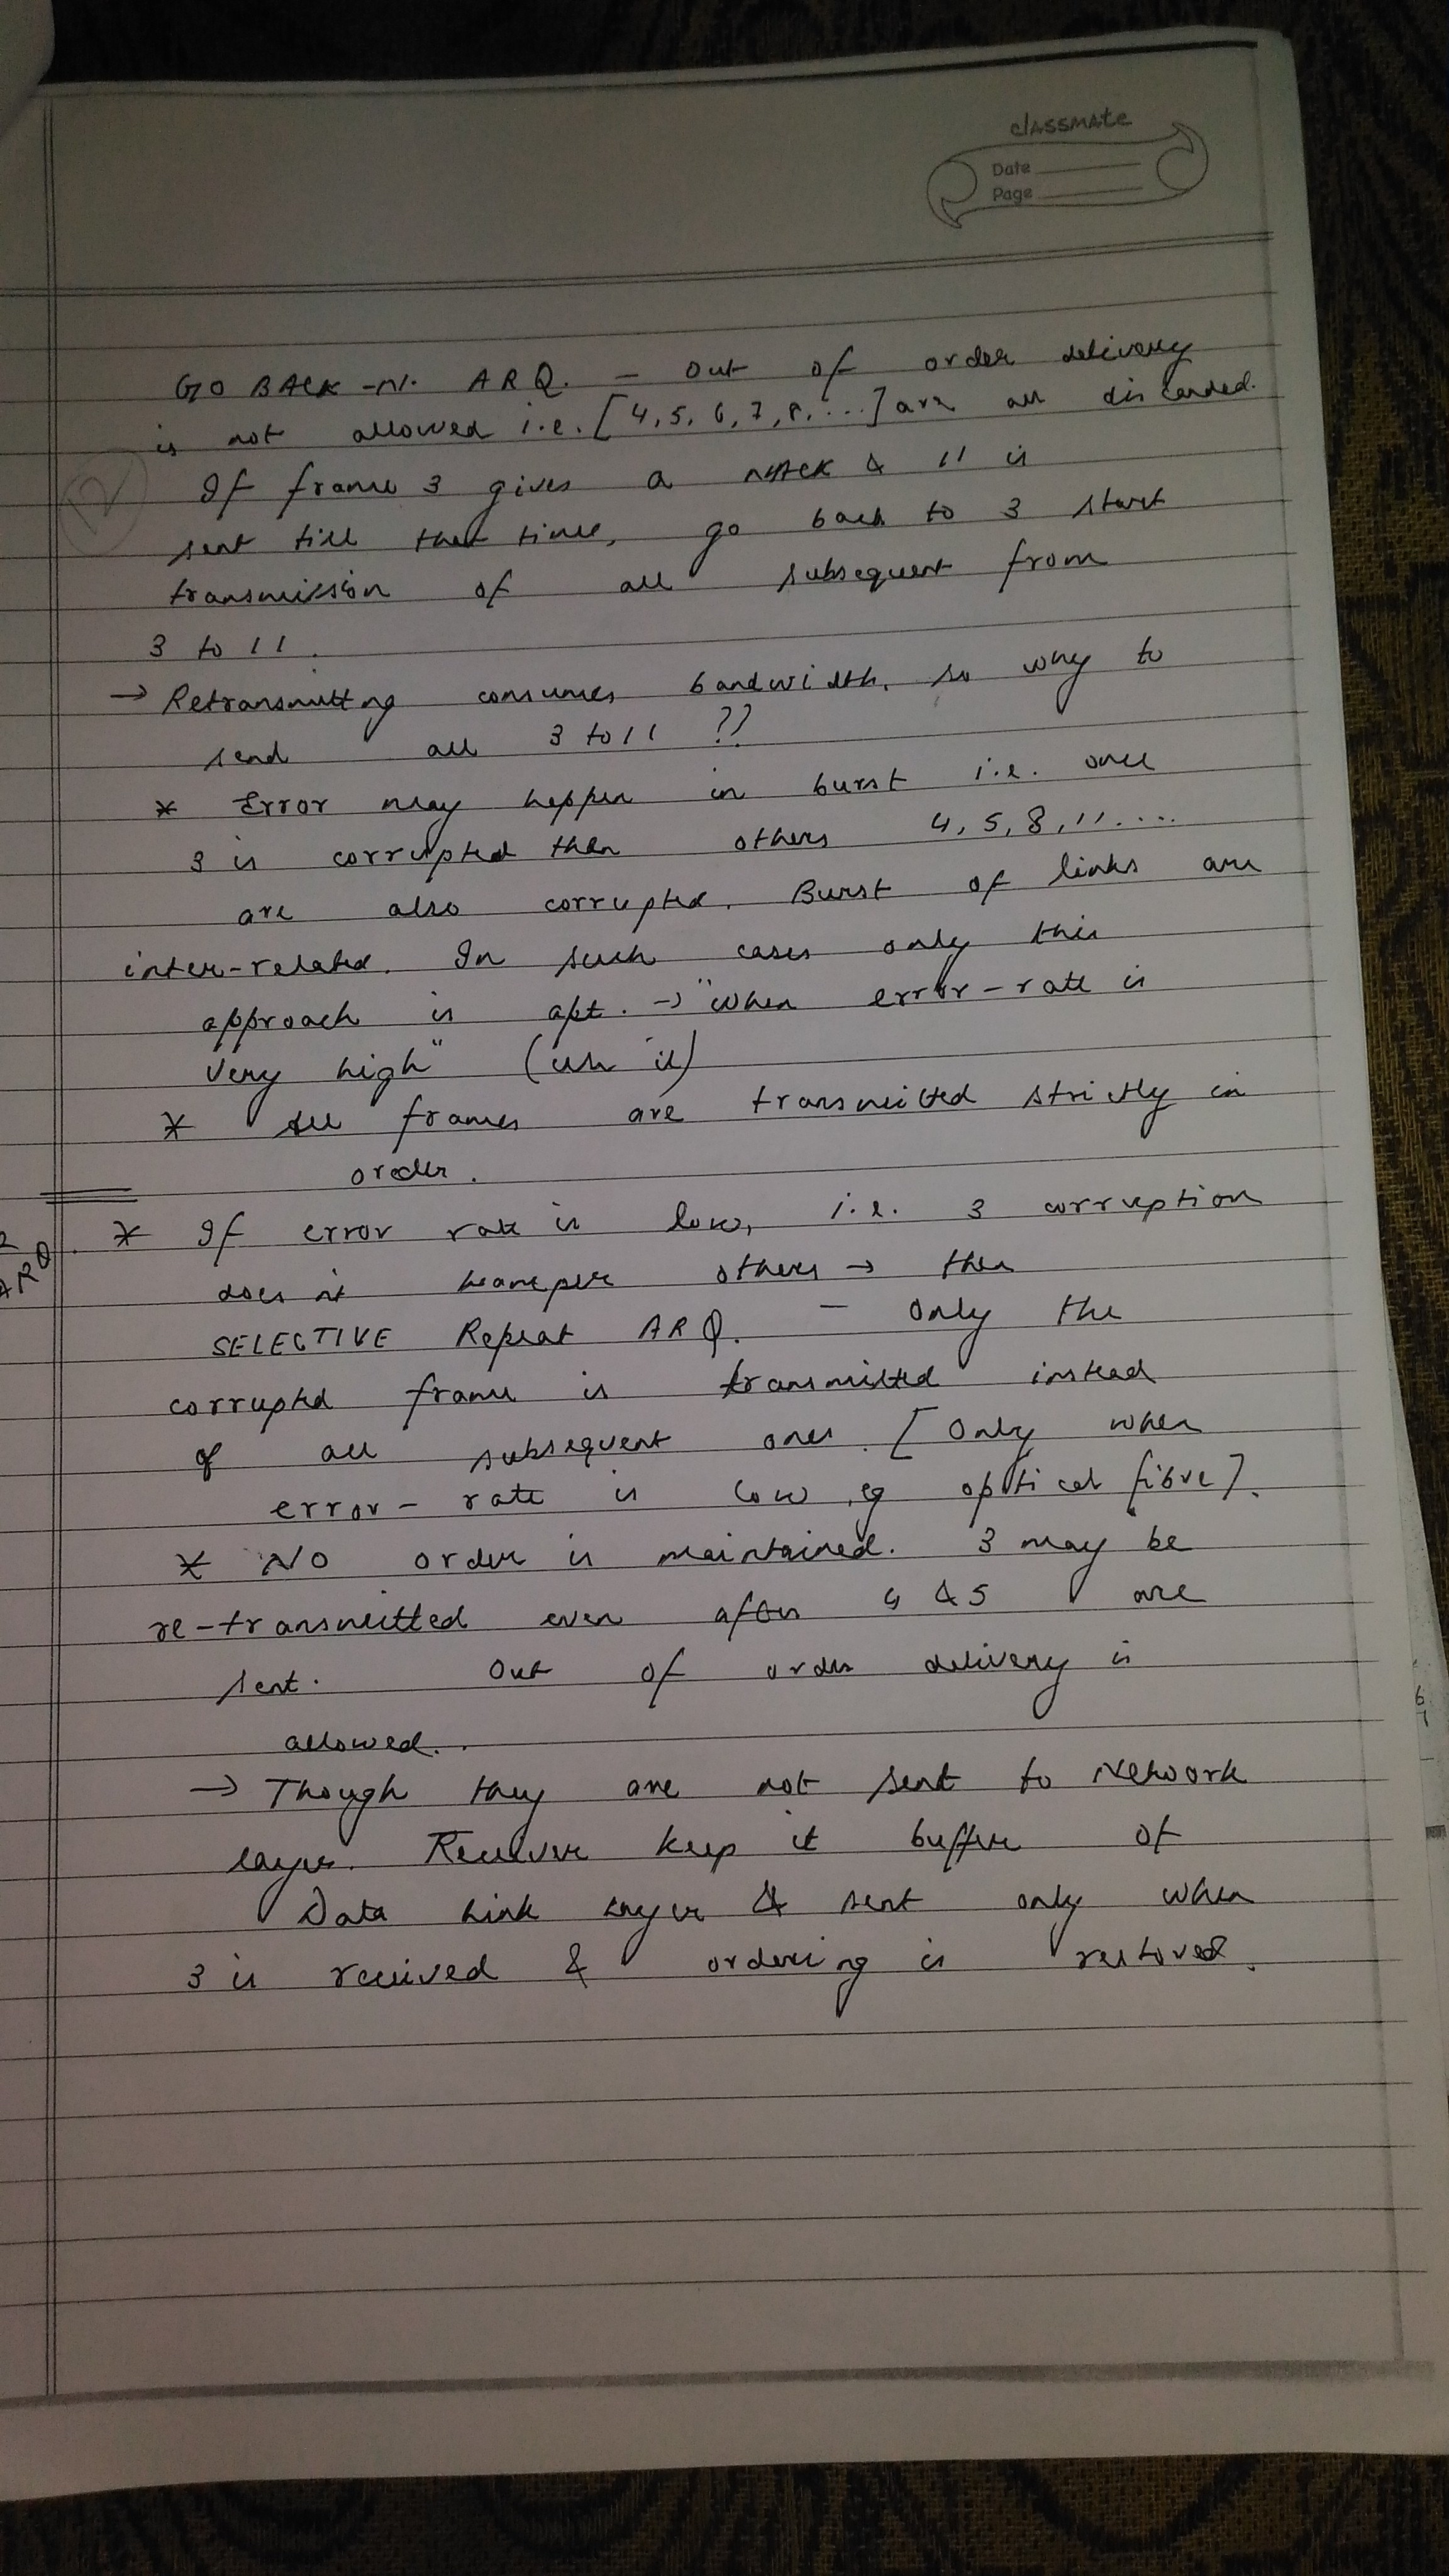 classmate
Date
Page
GO BACK-N. ARQ. - Out of order delivery
is not allowed i.e. [4, 5, 6, 7, 8, ...] are all discarded.
If frame 3 gives a NACK & 11 is
sent till that time, go back to 3 start
transmission of all subsequent from
3 to 11.
→ Retransmitting consumes bandwidth, so why to
send all 3 to 11 ??
* Error may happen in burst i.e. once
3 is corrupted then others 4, 5, 8, 11....
are also corrupted. Burst of links are
inter-related. In such cases only this
approach is apt. → "When error-rate is
very high" (use it)
* All frames are transmitted strictly in
order.
ARQ.
* If error rate is low, i.e. 3 corruption
does n't hamper others → then
SELECTIVE Repeat ARQ. - Only the
corrupted frame is transmitted instead
of all subsequent ones. [Only when
error-rate is low, eg optical fibre].
* NO order is maintained. 3 may be
re-transmitted even after 4 & 5 are
sent. Out of order delivery is
allowed..
→ Though they are not sent to Network
layer. Receiver keep it buffer of
Data Link Layer & sent only when
3 is received & ordering is restored.